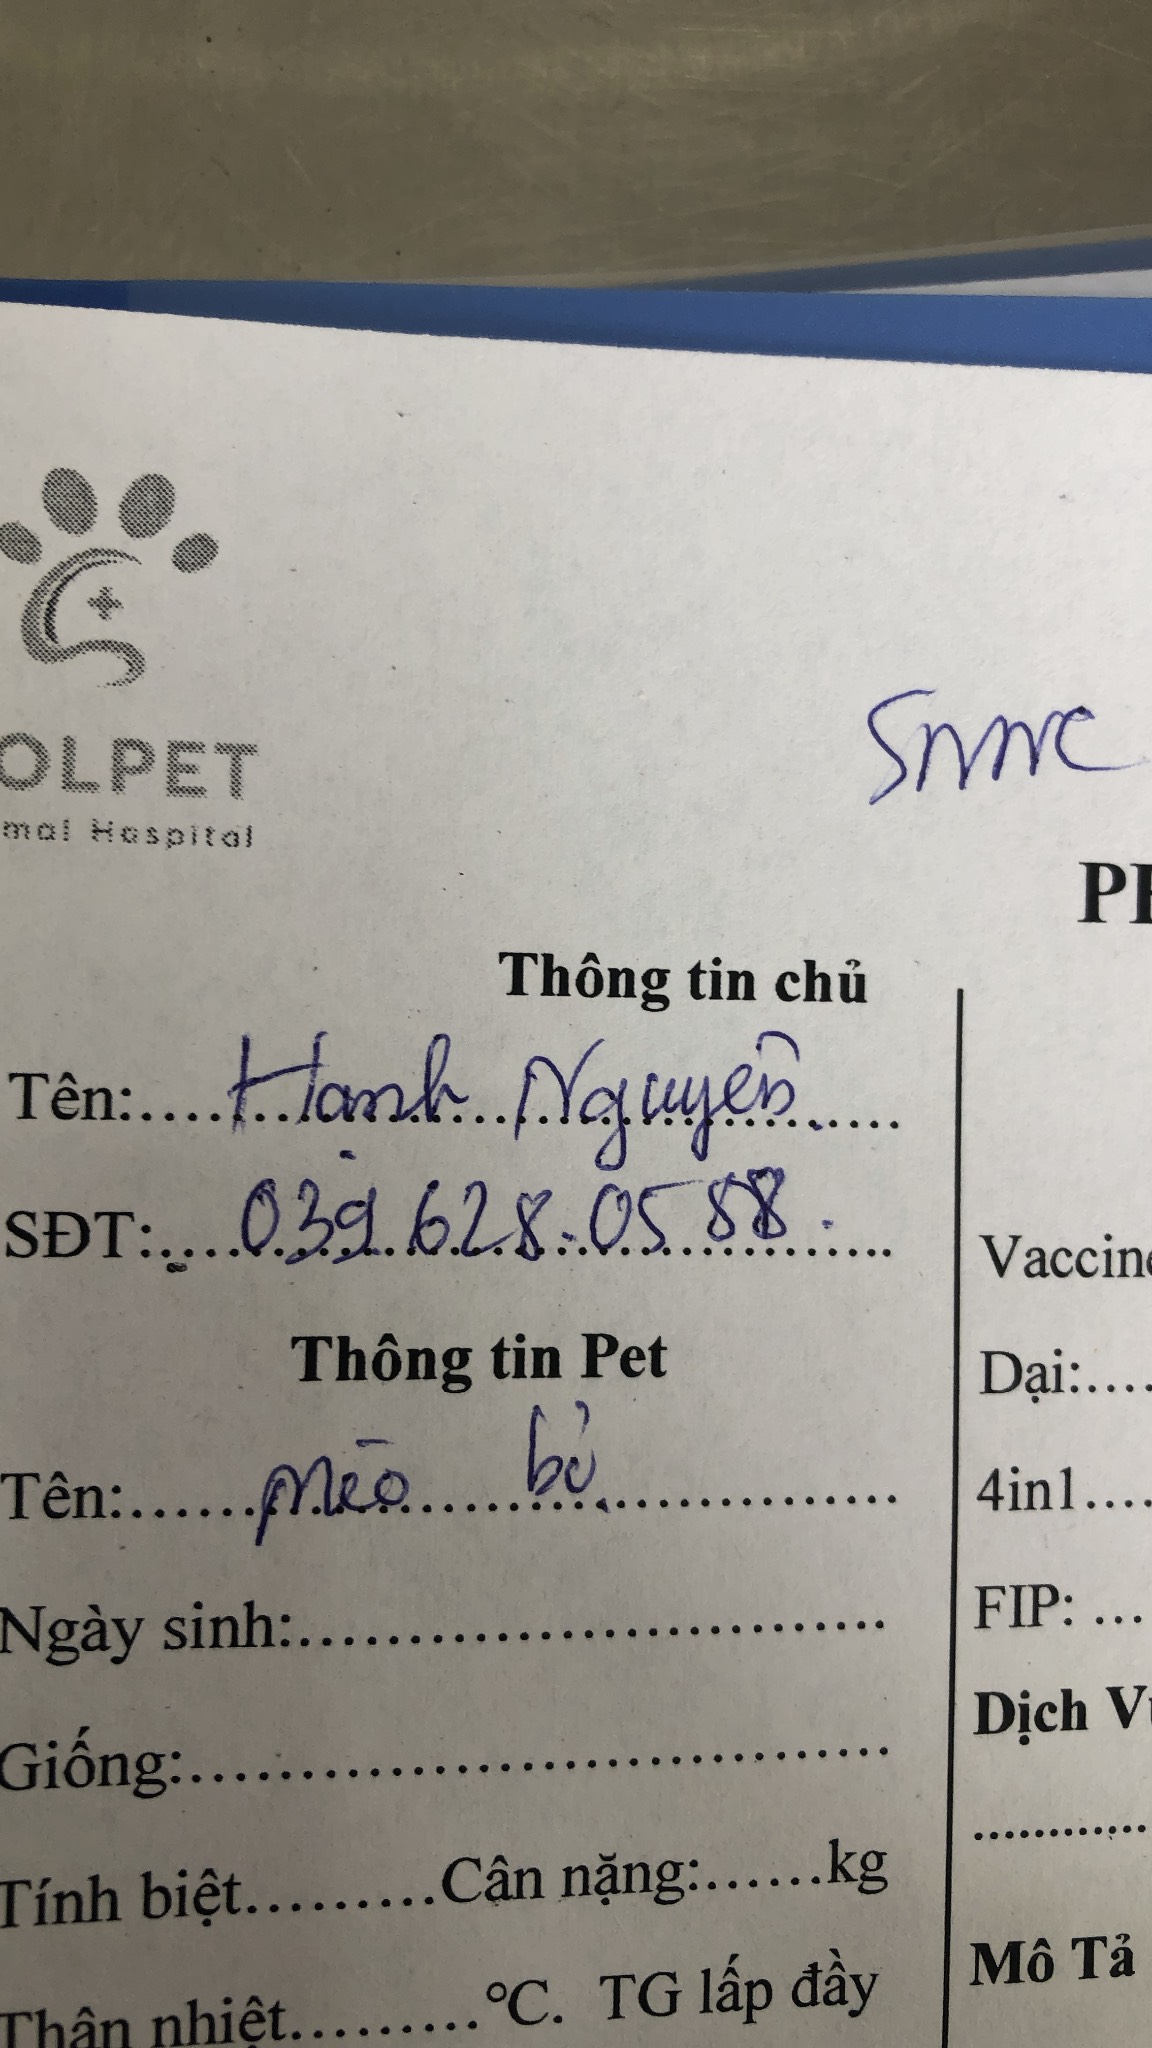 OLPET
mal Hospital
Thông tin chủ
Tên:..... Hạnh Nguyễn
SĐT:..... 039.628.0588.
Thông tin Pet
Tên:...... Mèo
Ngày sinh:..............................
Giống:..............................
Tính biệt.........Cân nặng:......kg
Thân nhiệt.........°C. TG lấp đầy
Vaccine
Dại:....
4in1....
FIP: ...
Dịch V
............
Mô Tả